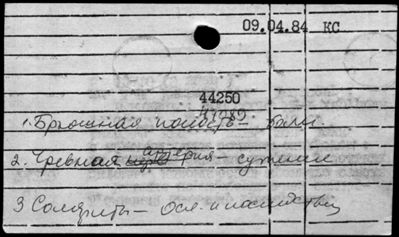 09.04.84 КС
44250
47989
1. Брюшная полость – боли.
2. Чревная артерия – сужение
3 Соляриты – осл. и последствия